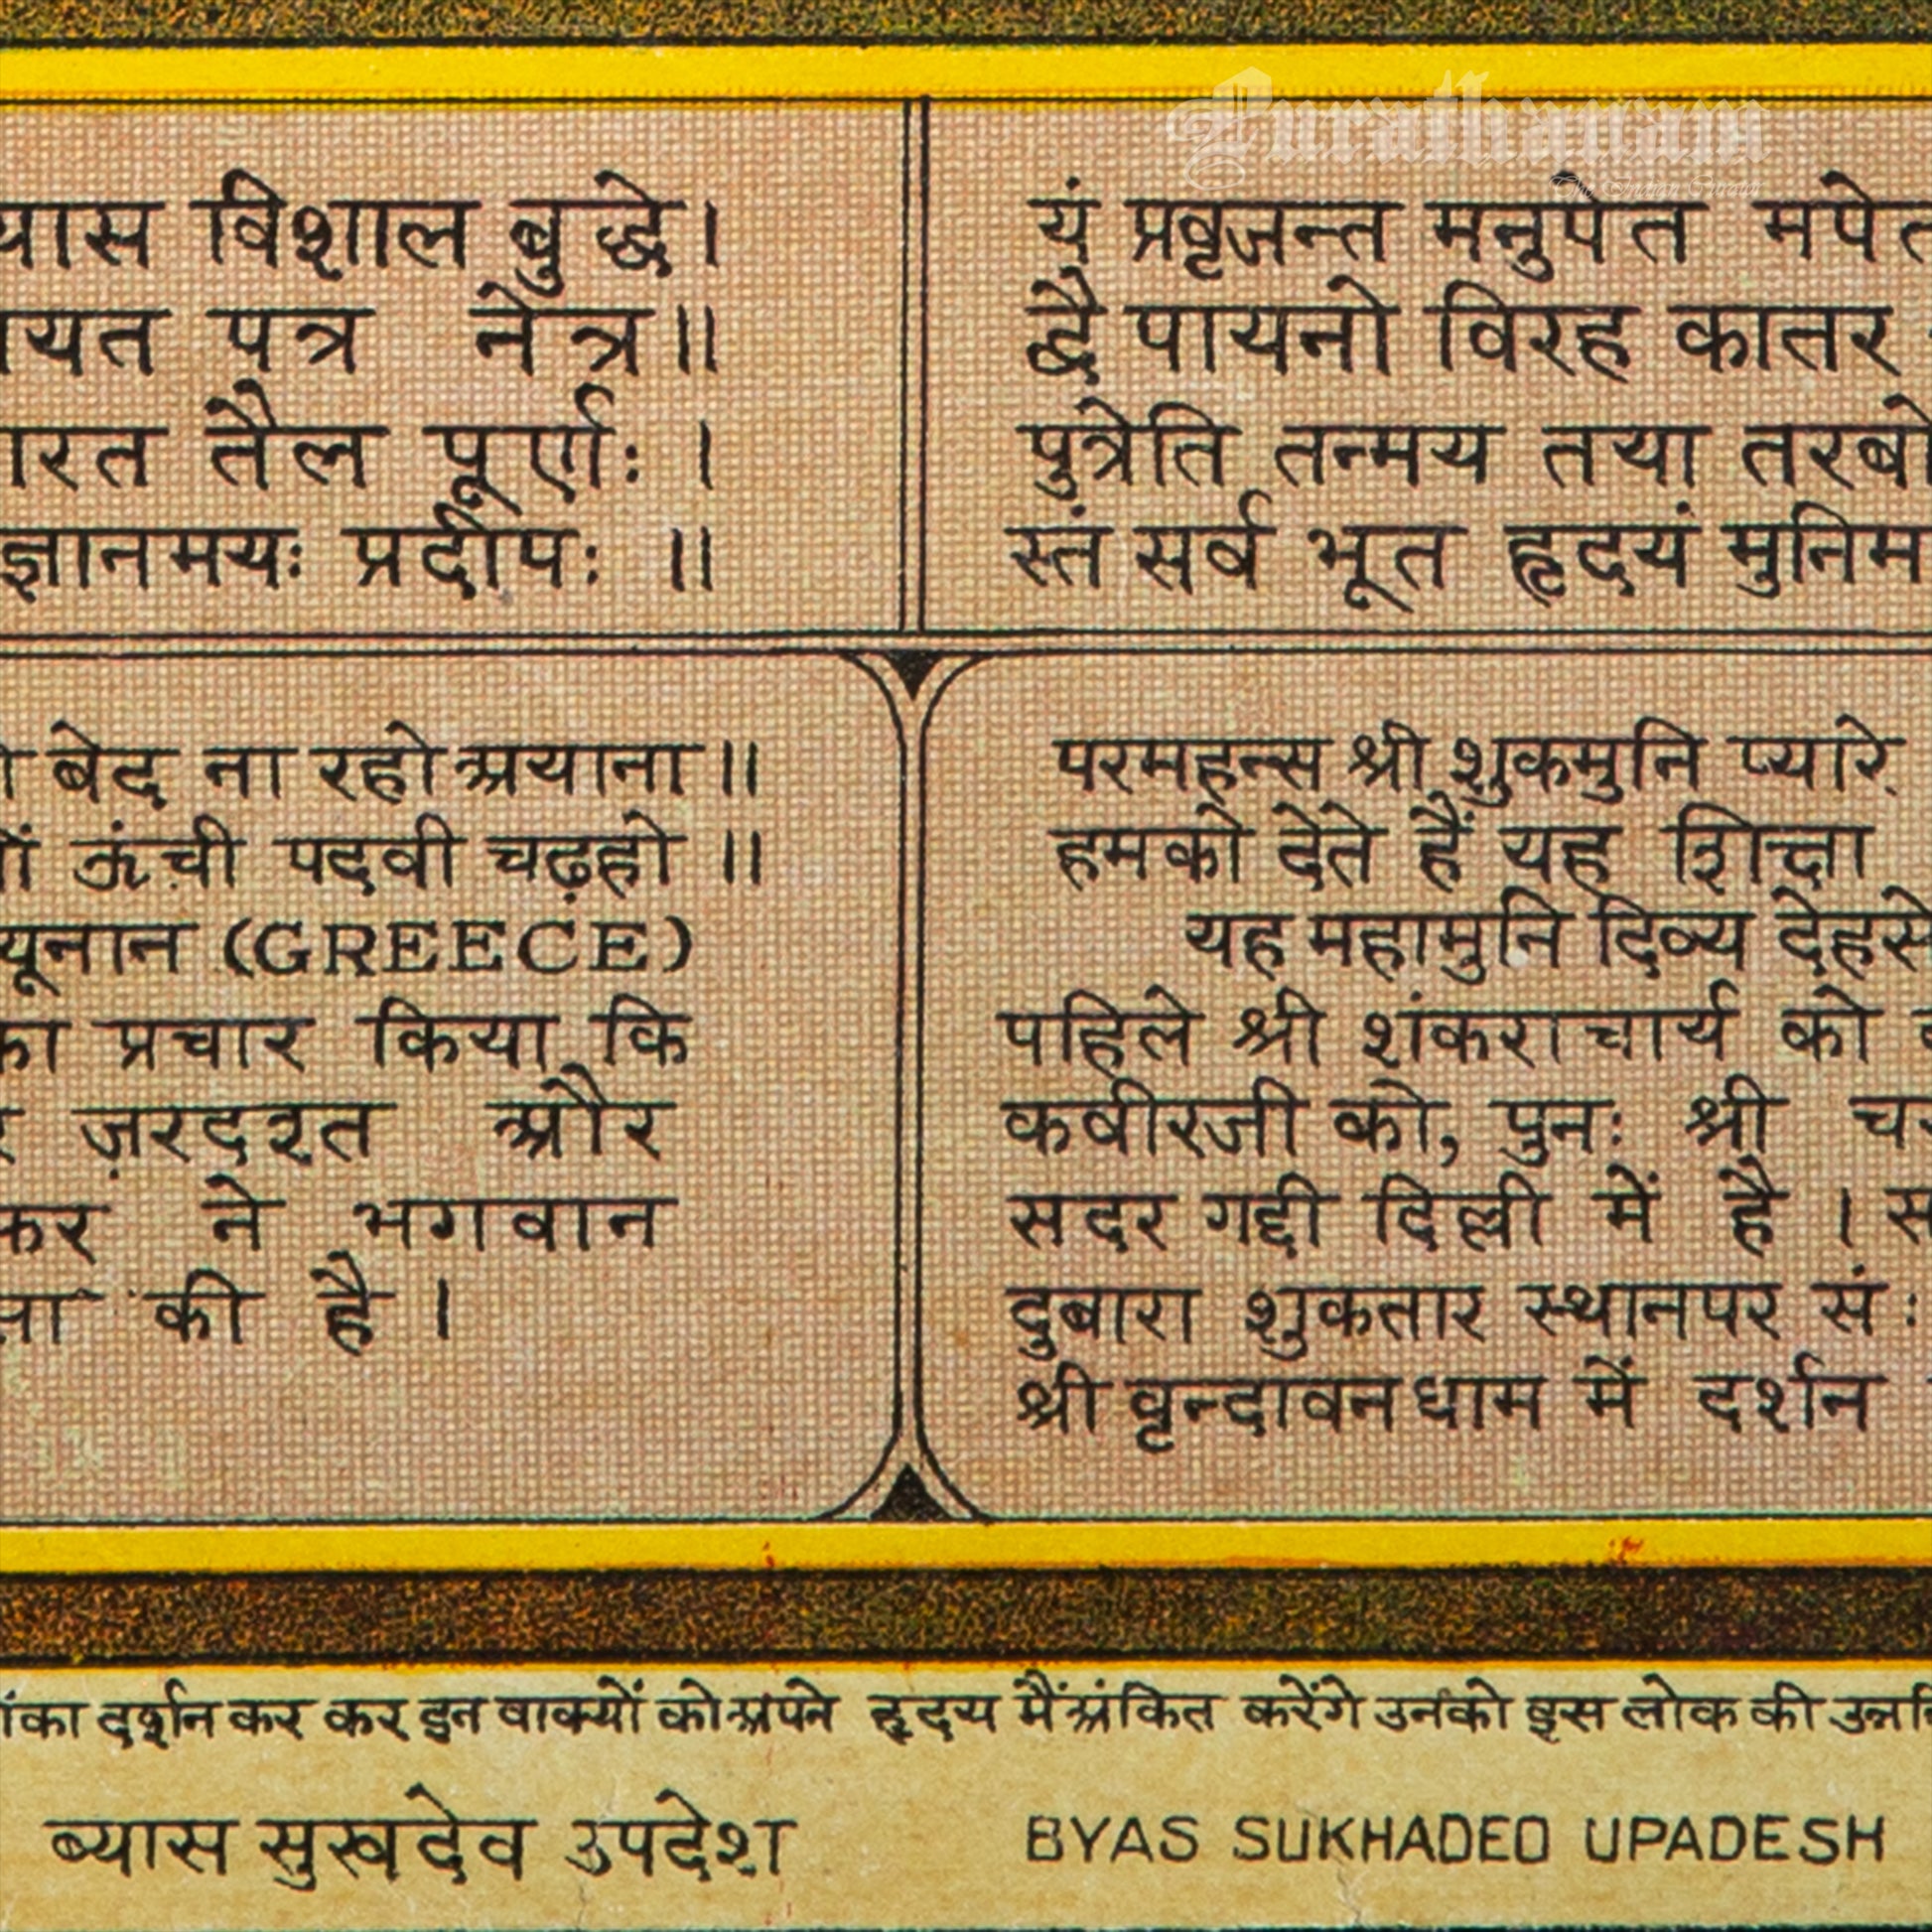 Purathanam
The Indian Curator
यास विशाल बुद्धे।
यत पत्र नेत्र॥
रत तैल पूर्णः।
ज्ञानमयः प्रदीपः॥
यं प्रवृजन्त मनुपेत मपेत
द्वै पायनो विरह कातर
पुत्रेति तन्मय तया तरबो
स्तं सर्व भूत हृदयं मुनिम
बेद ना रहो अयाना॥
ऊंची पदवी चढ़हो॥
यूनान (GREECE)
का प्रचार किया कि
ज़रदश्त और
कर ने भगवान
की है।
परमहन्स श्री शुकमुनि प्यारे
हमको देते हैं यह शिक्षा
यह महामुनि दिव्य देहसे
पहिले श्री शंकराचार्य को
कवीरजी को, पुनः श्री
सदर गद्दी दिल्ली में है। स
दुबारा शुकतार स्थानपर सं
श्री वृन्दावनधाम में दर्शन
का दर्शन कर कर इन वाक्यों को अपने हृदय मैं अंकित करेंगे उनको इस लोक की उन्नति
ब्यास सुखदेव उपदेश BYAS SUKHADEO UPADESH